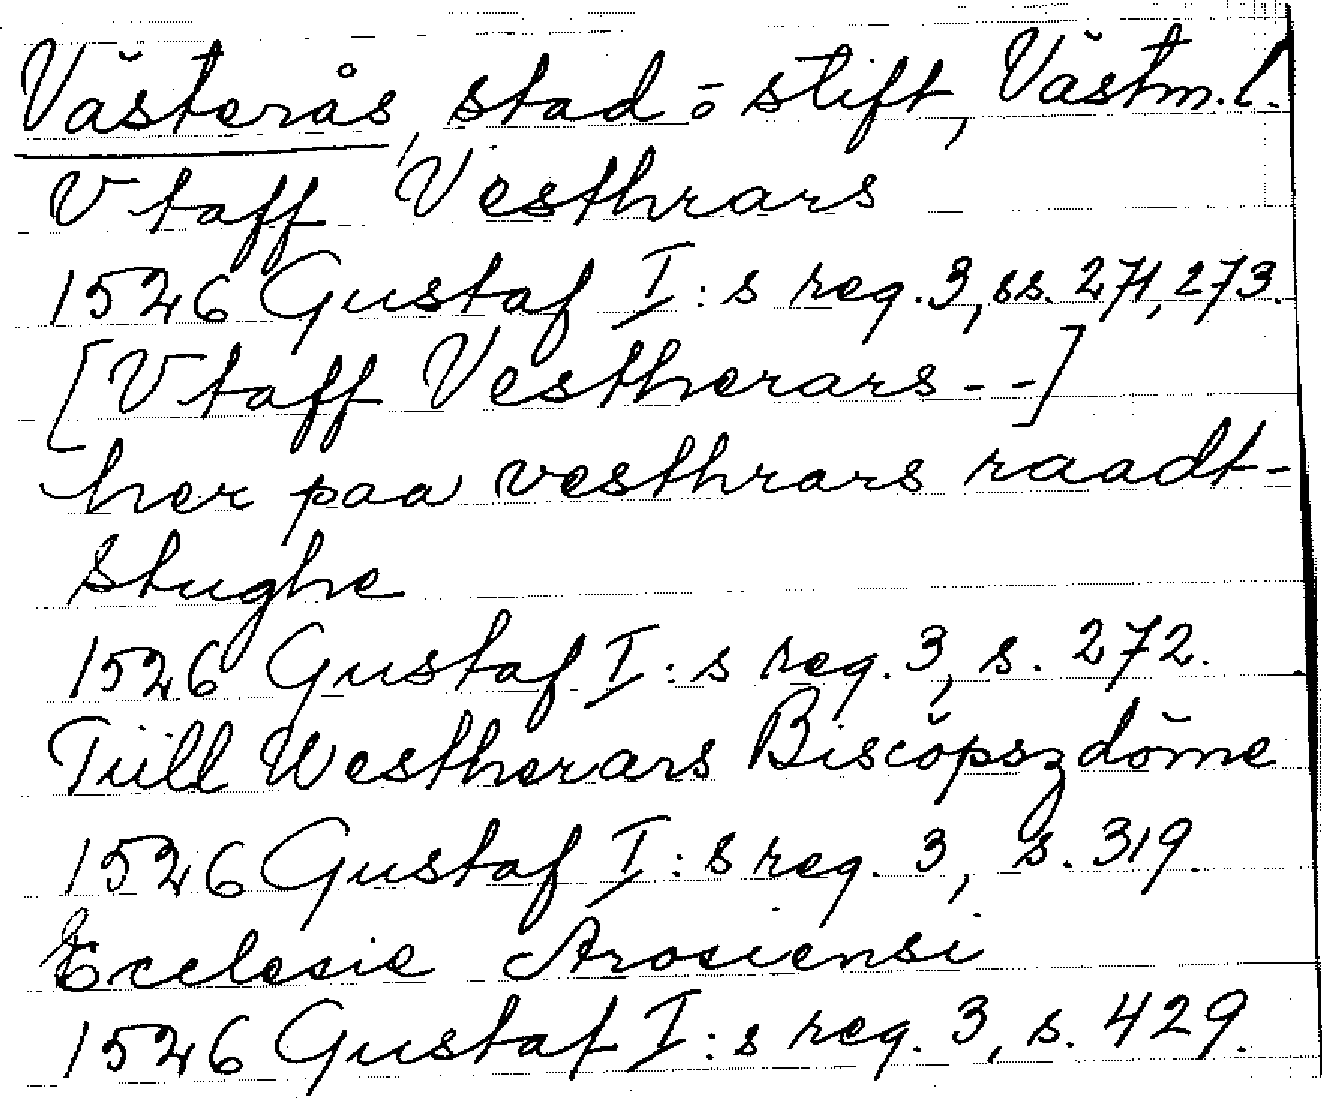 Västerås, stad o stift, Västm. l.
Vtaff Vesthrars
1526 Gustaf I:s reg. 3, ss. 271, 273.
[Vtaff Vestherars--]
her paa vesthrars raadt-
stughe
1526 Gustaf I:s reg. 3, s. 272.
Tiill Westherars Biscõpszdõme
1526 Gustaf I:s reg. 3, s. 319.
Ecclesie Arosiensi
1526 Gustaf I:s reg. 3, s. 429.